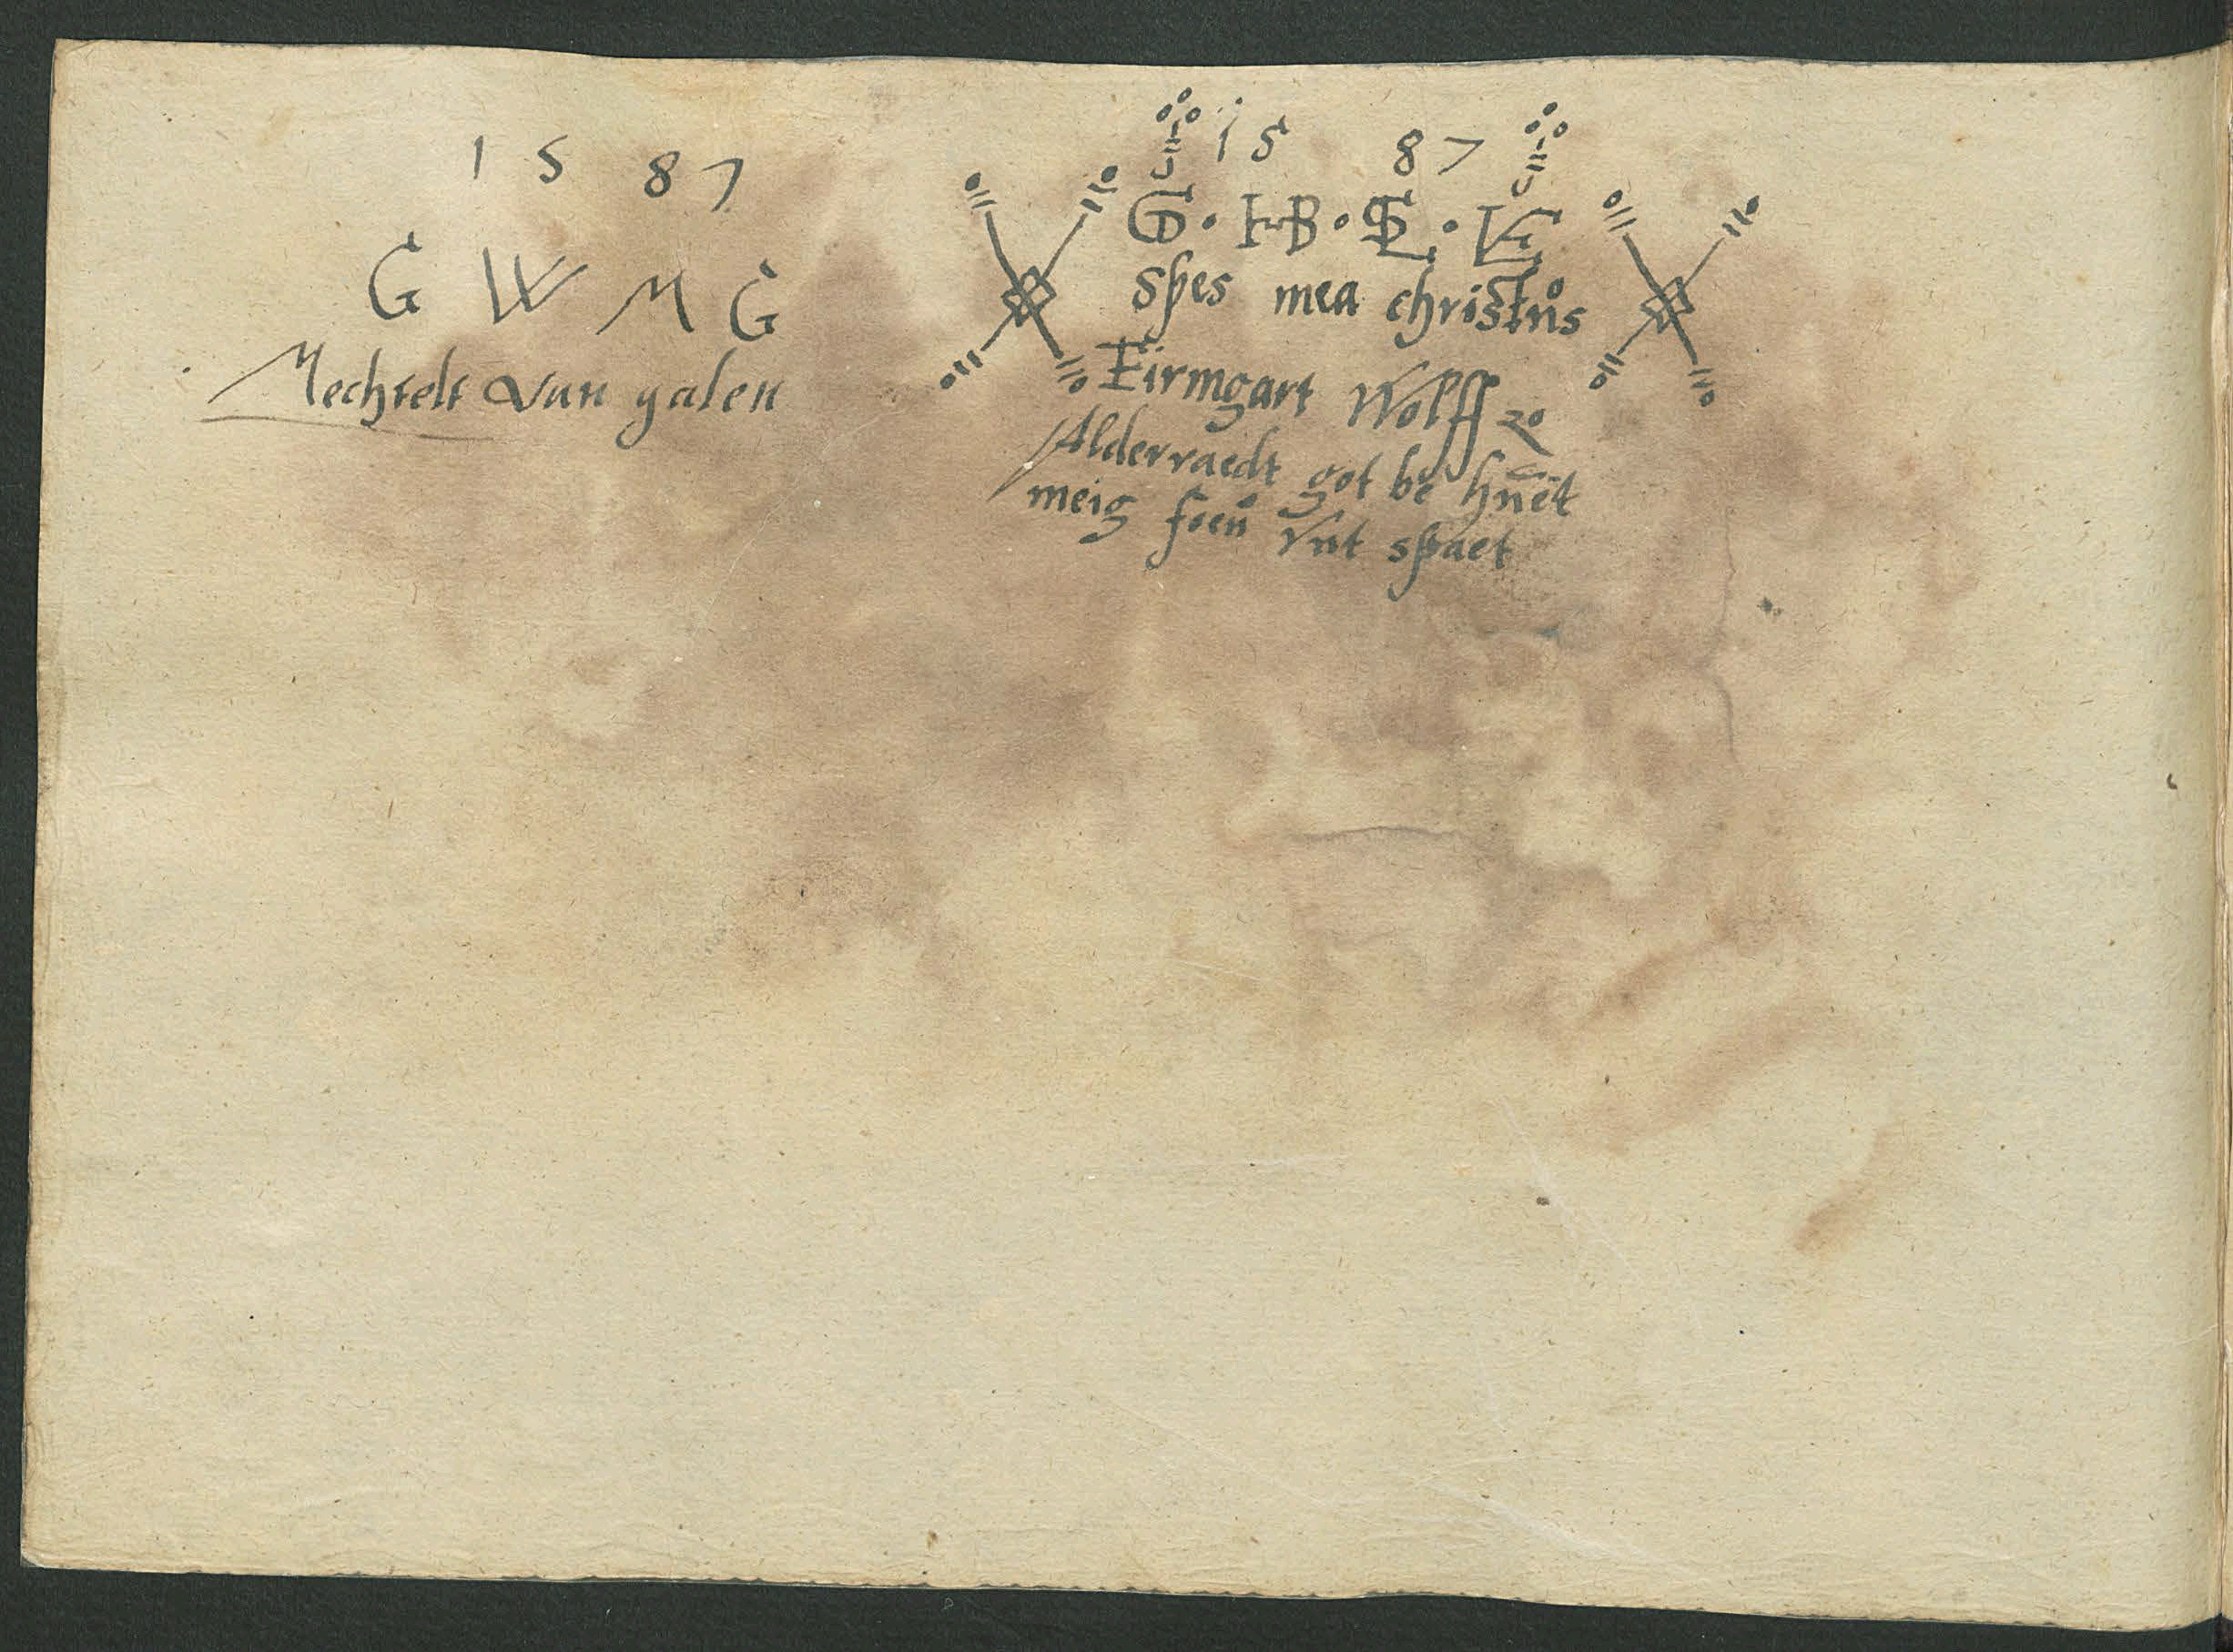 1 5 8 7
G W M G
Mechtelt van galen
15 87
G · HB · SL · LE
Spes mea christůs
Eirmgart Wolff
Alderraedt got be hůet
meig froeů vnt spaet